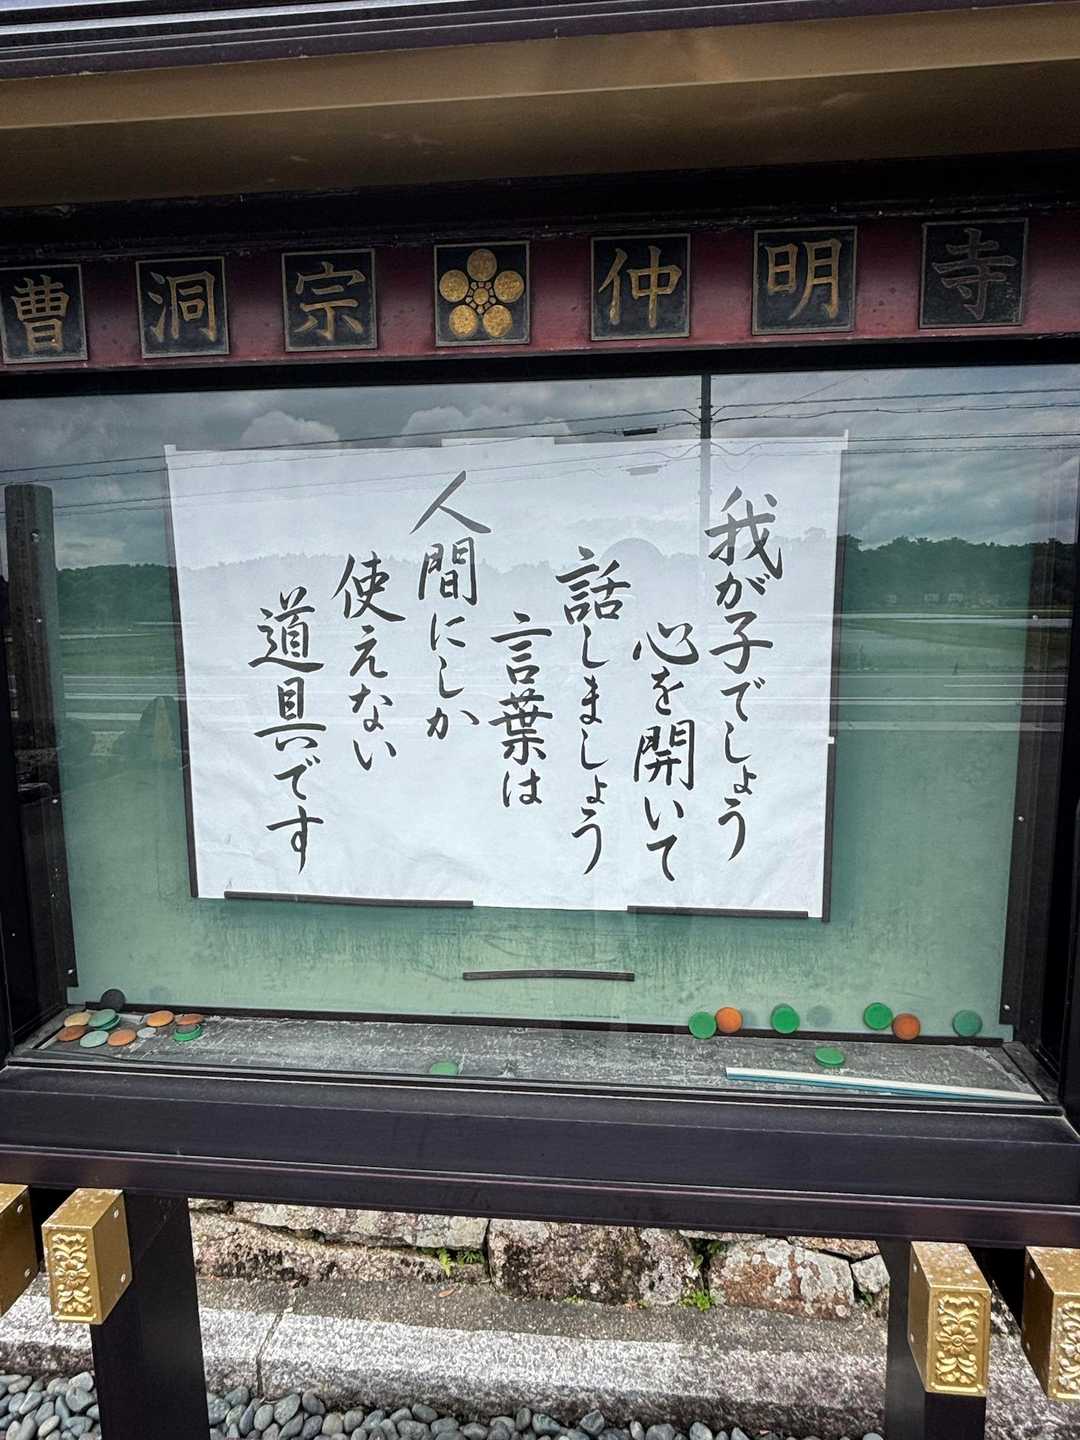 曹洞宗 仲明寺
我が子でしょう
心を開いて
話しましょう
言葉は
人間にしか
使えない
道具です